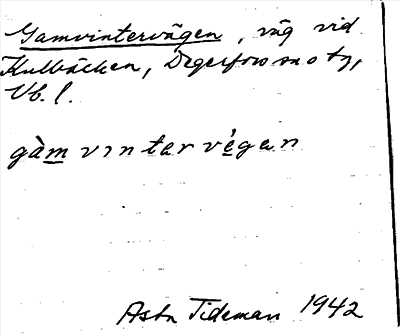 Gamvintervägen, väg vid
Kulbäcken, Degerfors sn o tg,
Vb. l.
gàm vın tər vé̀gan
Asta Tideman 1942